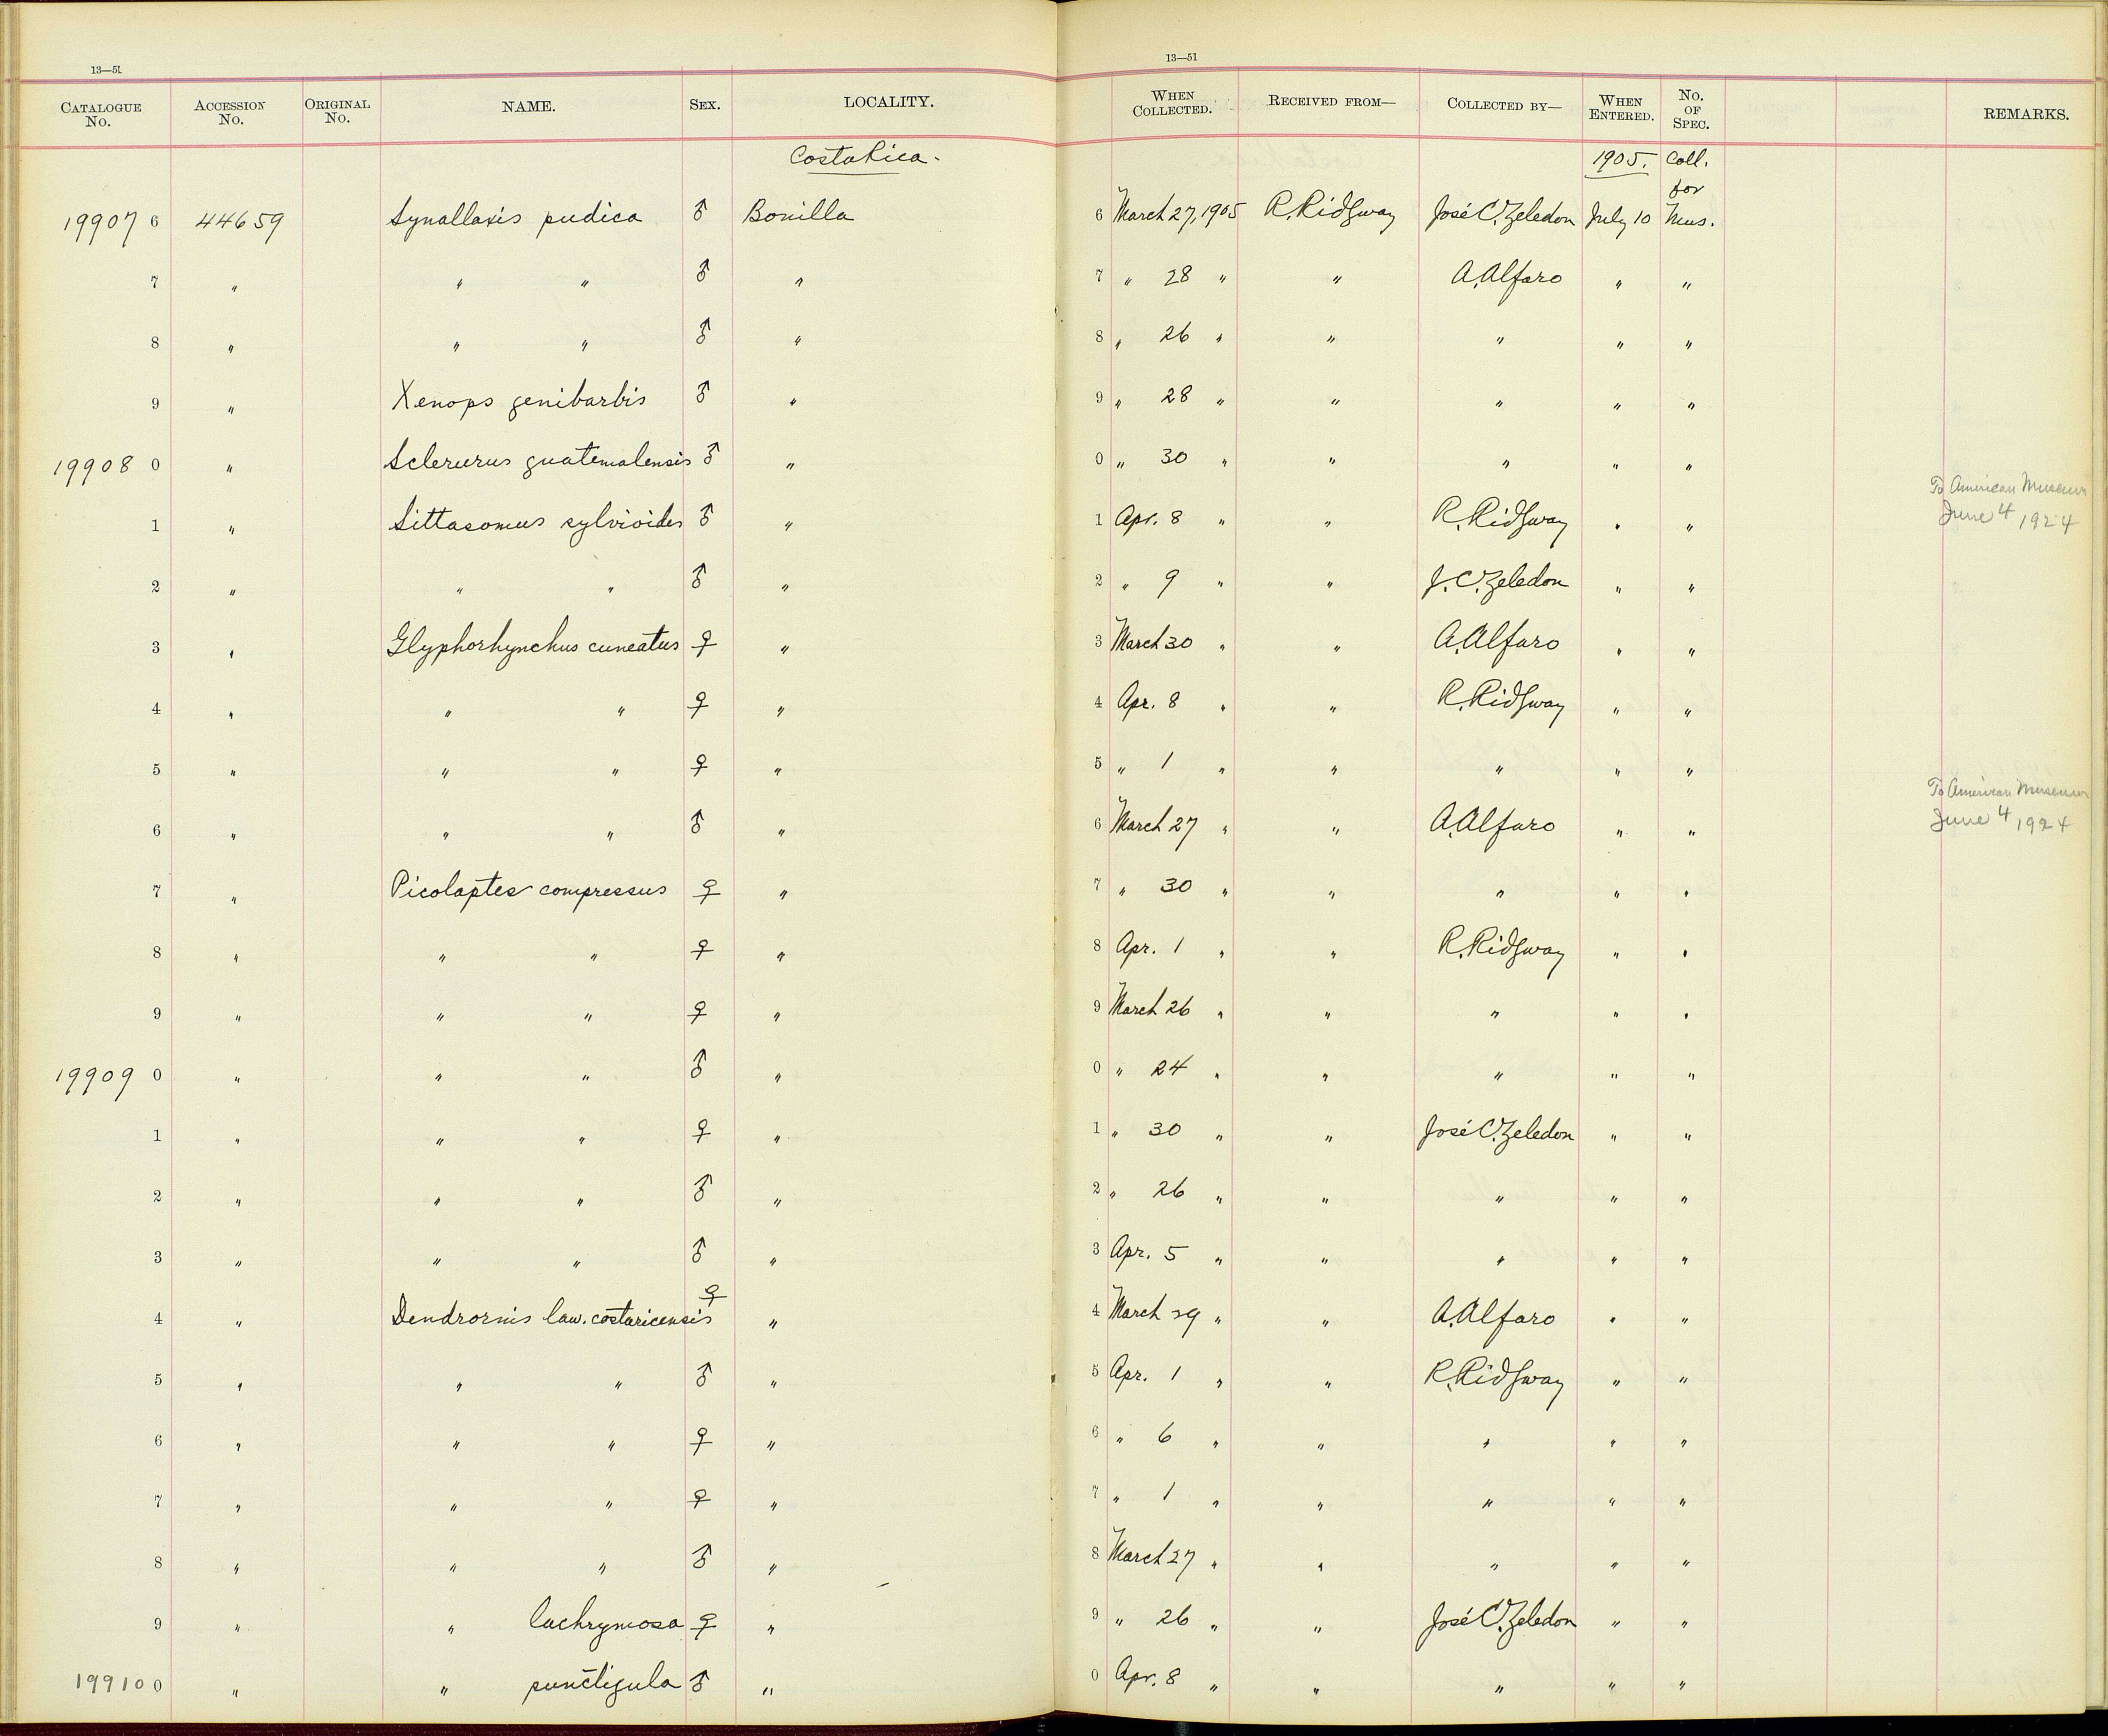 13—51
13—51
CATALOGUE No. ACCESSION No. ORIGINAL No. NAME. SEX. LOCALITY. WHEN COLLECTED. RECEIVED FROM— COLLECTED BY— WHEN ENTERED. No. OF SPEC. REMARKS.
Costa Rica. 1905. Coll. for
19907 6 44659 Synallaxis pudica ♂ Bonilla 6 March 27, 1905 R. Ridgway José C. Zeledon July 10 Mus.
7 " " " ♂ " 7 " 28 " " A. Alfaro " "
8 " " " ♂ " 8 " 26 " " " " "
9 " Xenops genibarbis ♂ " 9 " 28 " " " " "
19908 0 " Sclerurus guatemalensis ♂ " 0 " 30 " " " " "
1 " Sittasomus sylvioides ♂ " 1 Apr. 8 " " R. Ridgway " " To American Museum June 4 1924
2 " " " ♂ " 2 " 9 " " J. C. Zeledon " "
3 " Glyphorhynchus cuneatus ♀ " 3 March 30 " " A. Alfaro " "
4 " " " ♀ " 4 Apr. 8 " " R. Ridgway " "
5 " " " ♀ " 5 " 1 " " " " "
6 " " " ♂ " 6 March 27 " " A. Alfaro " " To American Museum June 4 1924
7 " Picolaptes compressus ♀ " 7 " 30 " " " " "
8 " " " ♀ " 8 Apr. 1 " " R. Ridgway " "
9 " " " ♀ " 9 March 26 " " " " "
19909 0 " " " ♂ " 0 " 24 " " " " "
1 " " " ♀ " 1 " 30 " " José C. Zeledon " "
2 " " " ♂ " 2 " 26 " " " " "
3 " " " ♂ " 3 Apr. 5 " " " " "
4 " Dendrornis law. costaricensis ♀ " 4 March 29 " " A. Alfaro " "
5 " " " ♂ " 5 Apr. 1 " " R. Ridgway " "
6 " " " ♀ " 6 " 6 " " " " "
7 " " " ♀ " 7 " 1 " " " " "
8 " " " ♂ " 8 March 27 " " " " "
9 " " lachrymosa ♀ " 9 " 26 " " José C. Zeledon " "
19910 0 " " punctigula ♂ " 0 Apr. 8 " " " " "